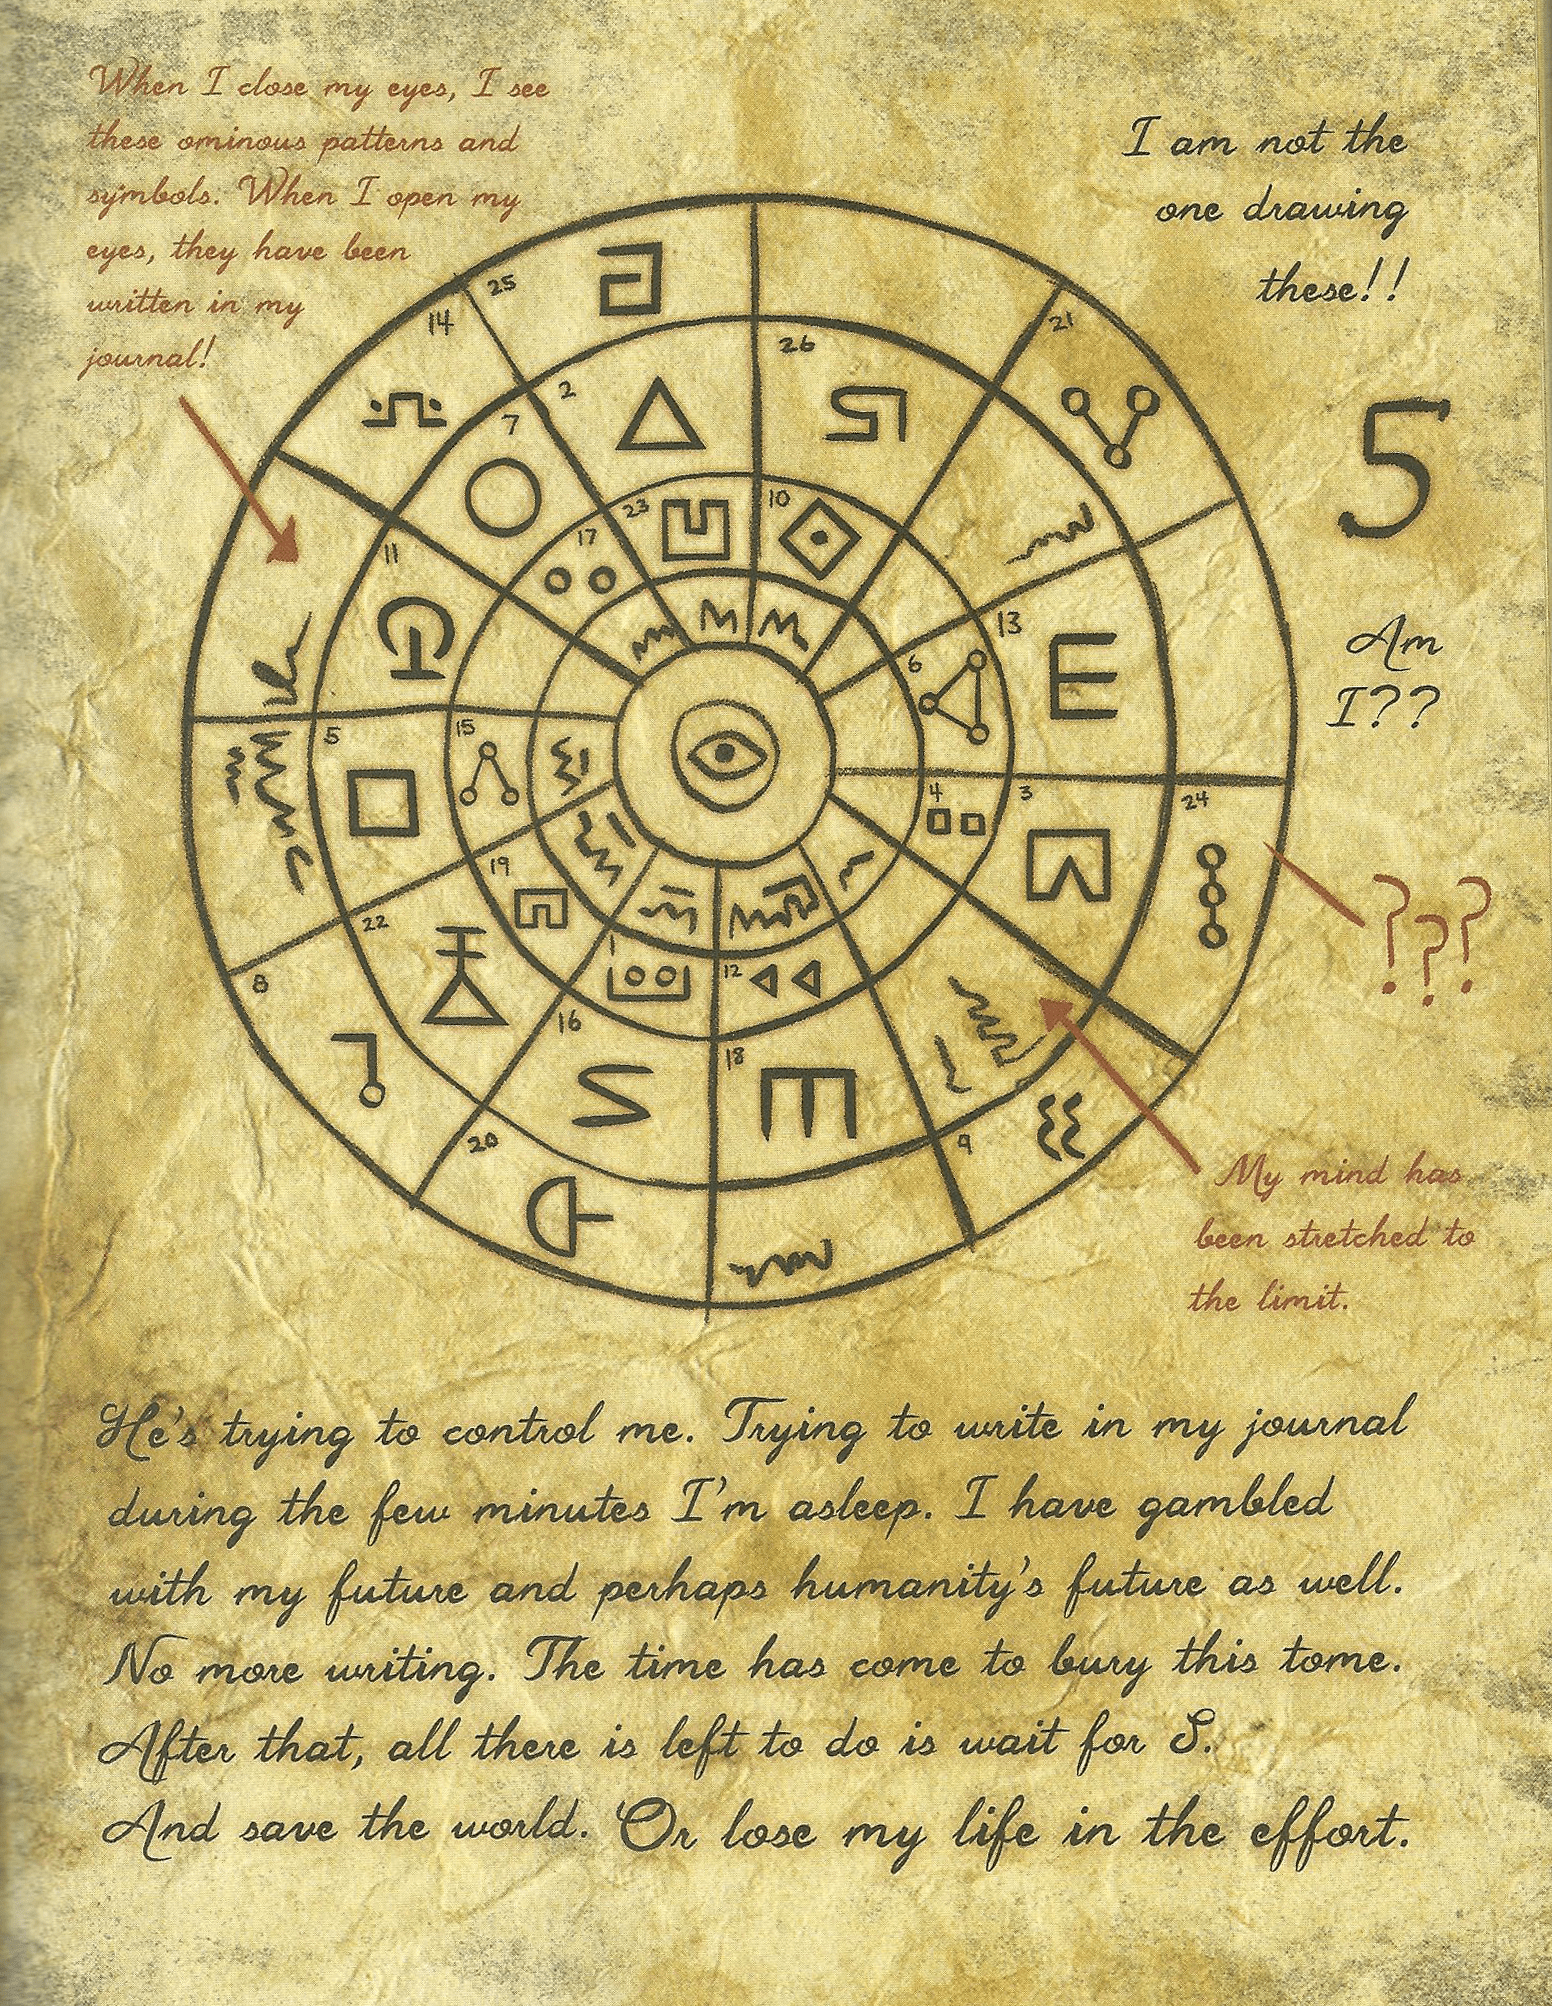 When I close my eyes, I see
these ominous patterns and
symbols. When I open my
eyes, they have been
written in my
journal!
I am not the
one drawing
these!!
25
14
26
21
2
7
23
10
17
11
13
6
5
15
4
3
24
19
22
1
12
8
16
18
20
9
5
Am
I??
???
My mind has
been stretched to
the limit.
He's trying to control me. Trying to write in my journal
during the few minutes I'm asleep. I have gambled
with my future and perhaps humanity's future as well.
No more writing. The time has come to bury this tome.
After that, all there is left to do is wait for S.
And save the world. Or lose my life in the effort.